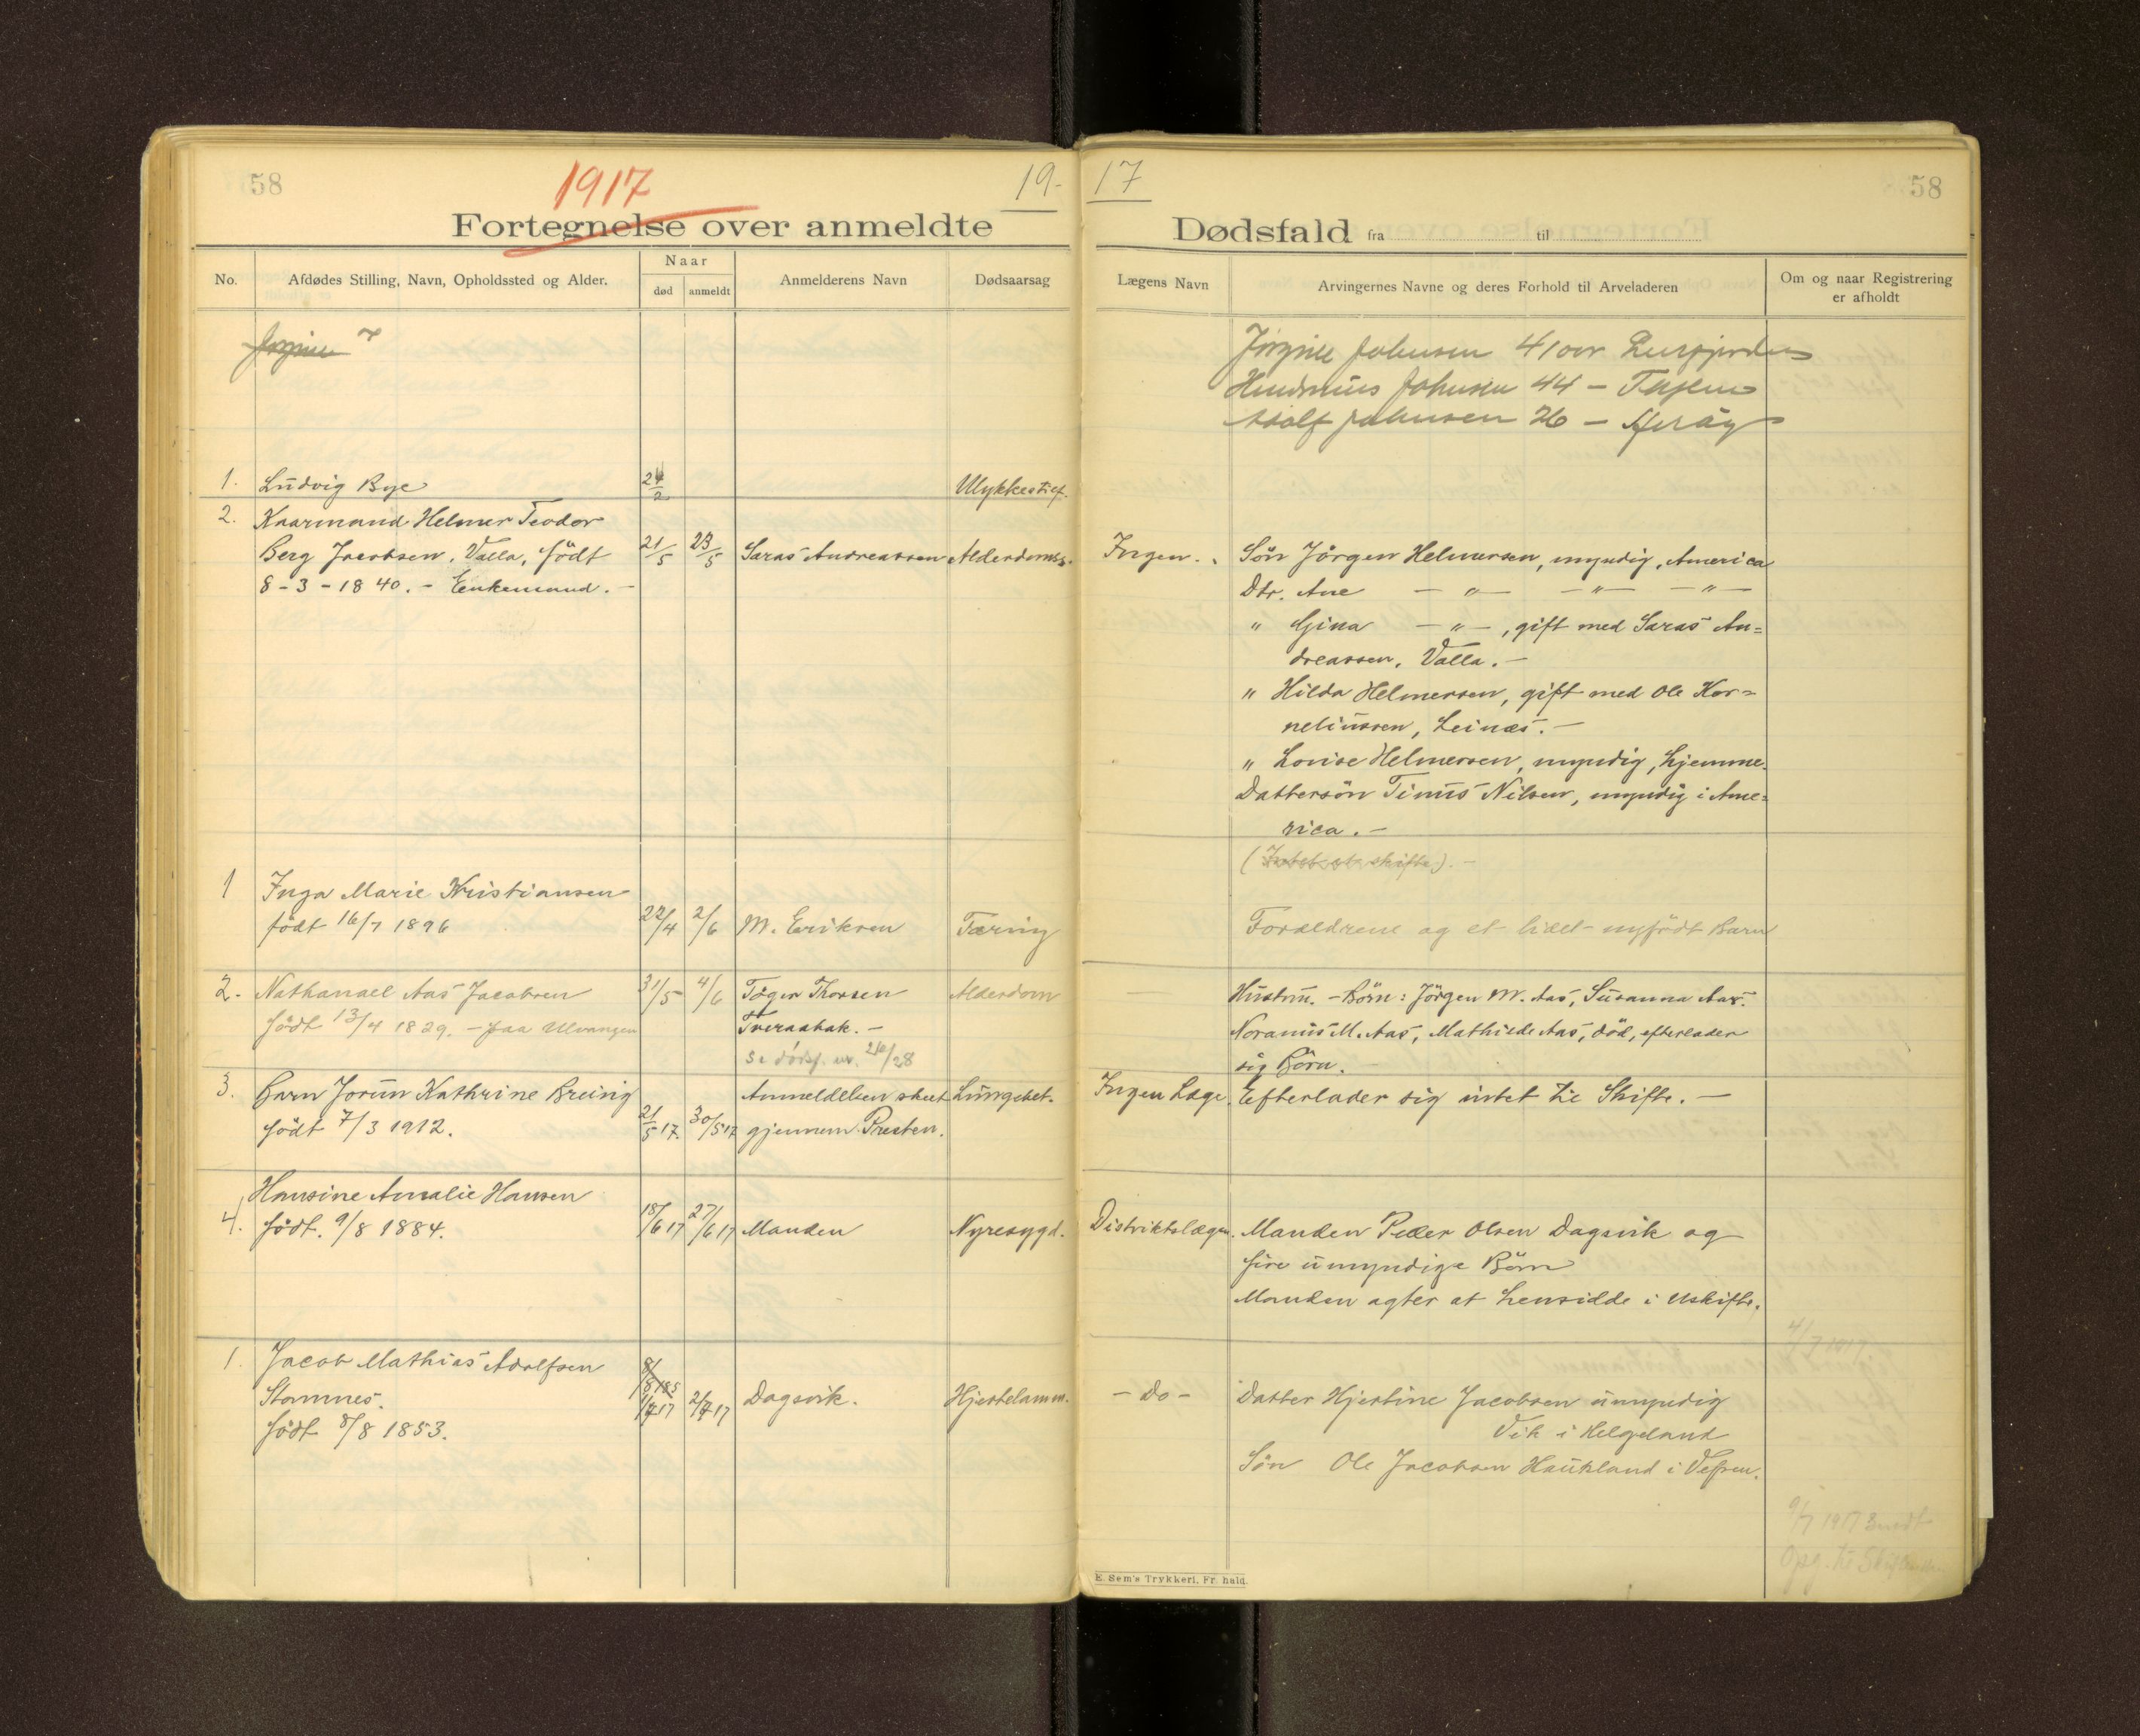 58
1917
19-
17
58
Fortegnelse over anmeldte
Dødsfald fra til
No.
Afdødes Stilling, Navn, Opholdssted og Alder.
Naar
død
anmeldt
Anmelderens Navn
Dødsaarsag
Lægens Navn
Arvingernes Navne og deres Forhold til Arveladeren
Om og naar Registrering
er afholdt
Jørgine Johnsen 41 aar
Johnsen 44 -
Adolf Johnsen 26 - Herøy
1. Ludvig Bye 24/2 Ulykkestilf.
2. Kaarmand Helmer Teodor
Berg Jacobsen, Valla, født 21/5 23/5 Saras Andreassen Alderdomss.
8-3-1840. - Enkemand. -
Ingen.
Søn Jørgen Helmersen, myndig, America
Dtr. Ane - " - - " - - " -
" Gina - " -, gift med Saras An=
dreassen, Valla. -
" Hilda Helmersen, gift med Ole Kor=
neliussen, Leinæs. -
" Lovise Helmersen, myndig, hjemme.
Dattersøn Tinus Nilsen, myndig i Ame=
rica. -
(Intet at skifte). -
1 Inga Marie Kristiansen
født 16/7 1896 22/4 2/6 M. Eriksen Tæring
Forældrene og et lidet nyfødt Barn
2. Nathanael Aas Jacobsen 31/5 4/6 Tøger Thorsen Alderdom
født 13/4 1829. - paa Ulvangen Tveraabak. -
se dødsf. nr. 26/28
Hustru. - Børn: Jørgen M. Aas, Susanna Aas.
Noranus M. Aas, Mathilde Aas, død, efterlader
sig Børn. -
3. Barn Jorun Kathrine Breinig Anmeldelsen skeet Lungebet.
født 7/3 1912. 21/5 17. 30/5 17 gjennem Presten.
Ingen Læge. Efterlader sig intet til Skifte. -
Hansine Amalie Hansen
4. født. 9/8 1884. 18/6 17 27/6 17 Manden Nyresygd.
Distriktslægen. Manden Peder Olsen Dagsvik og
fire umyndige Børn
Manden agter at hensidde i Uskifte.
4/7 1917
1. Jacob Mathias Adolfsen 8/8 185
Stamnes. 1/7 17 2/7 17 Dagsvik. Hjertelamm.
født 8/8 1853.
- Do - Datter Hjertine Jacobsen umyndig
Vik i Helgeland
Søn Ole Jacobsen Haukland i Vefsen.
9/7 1917 Sendt
Opg. til
E. Sem's Trykkeri, Fr. hald.